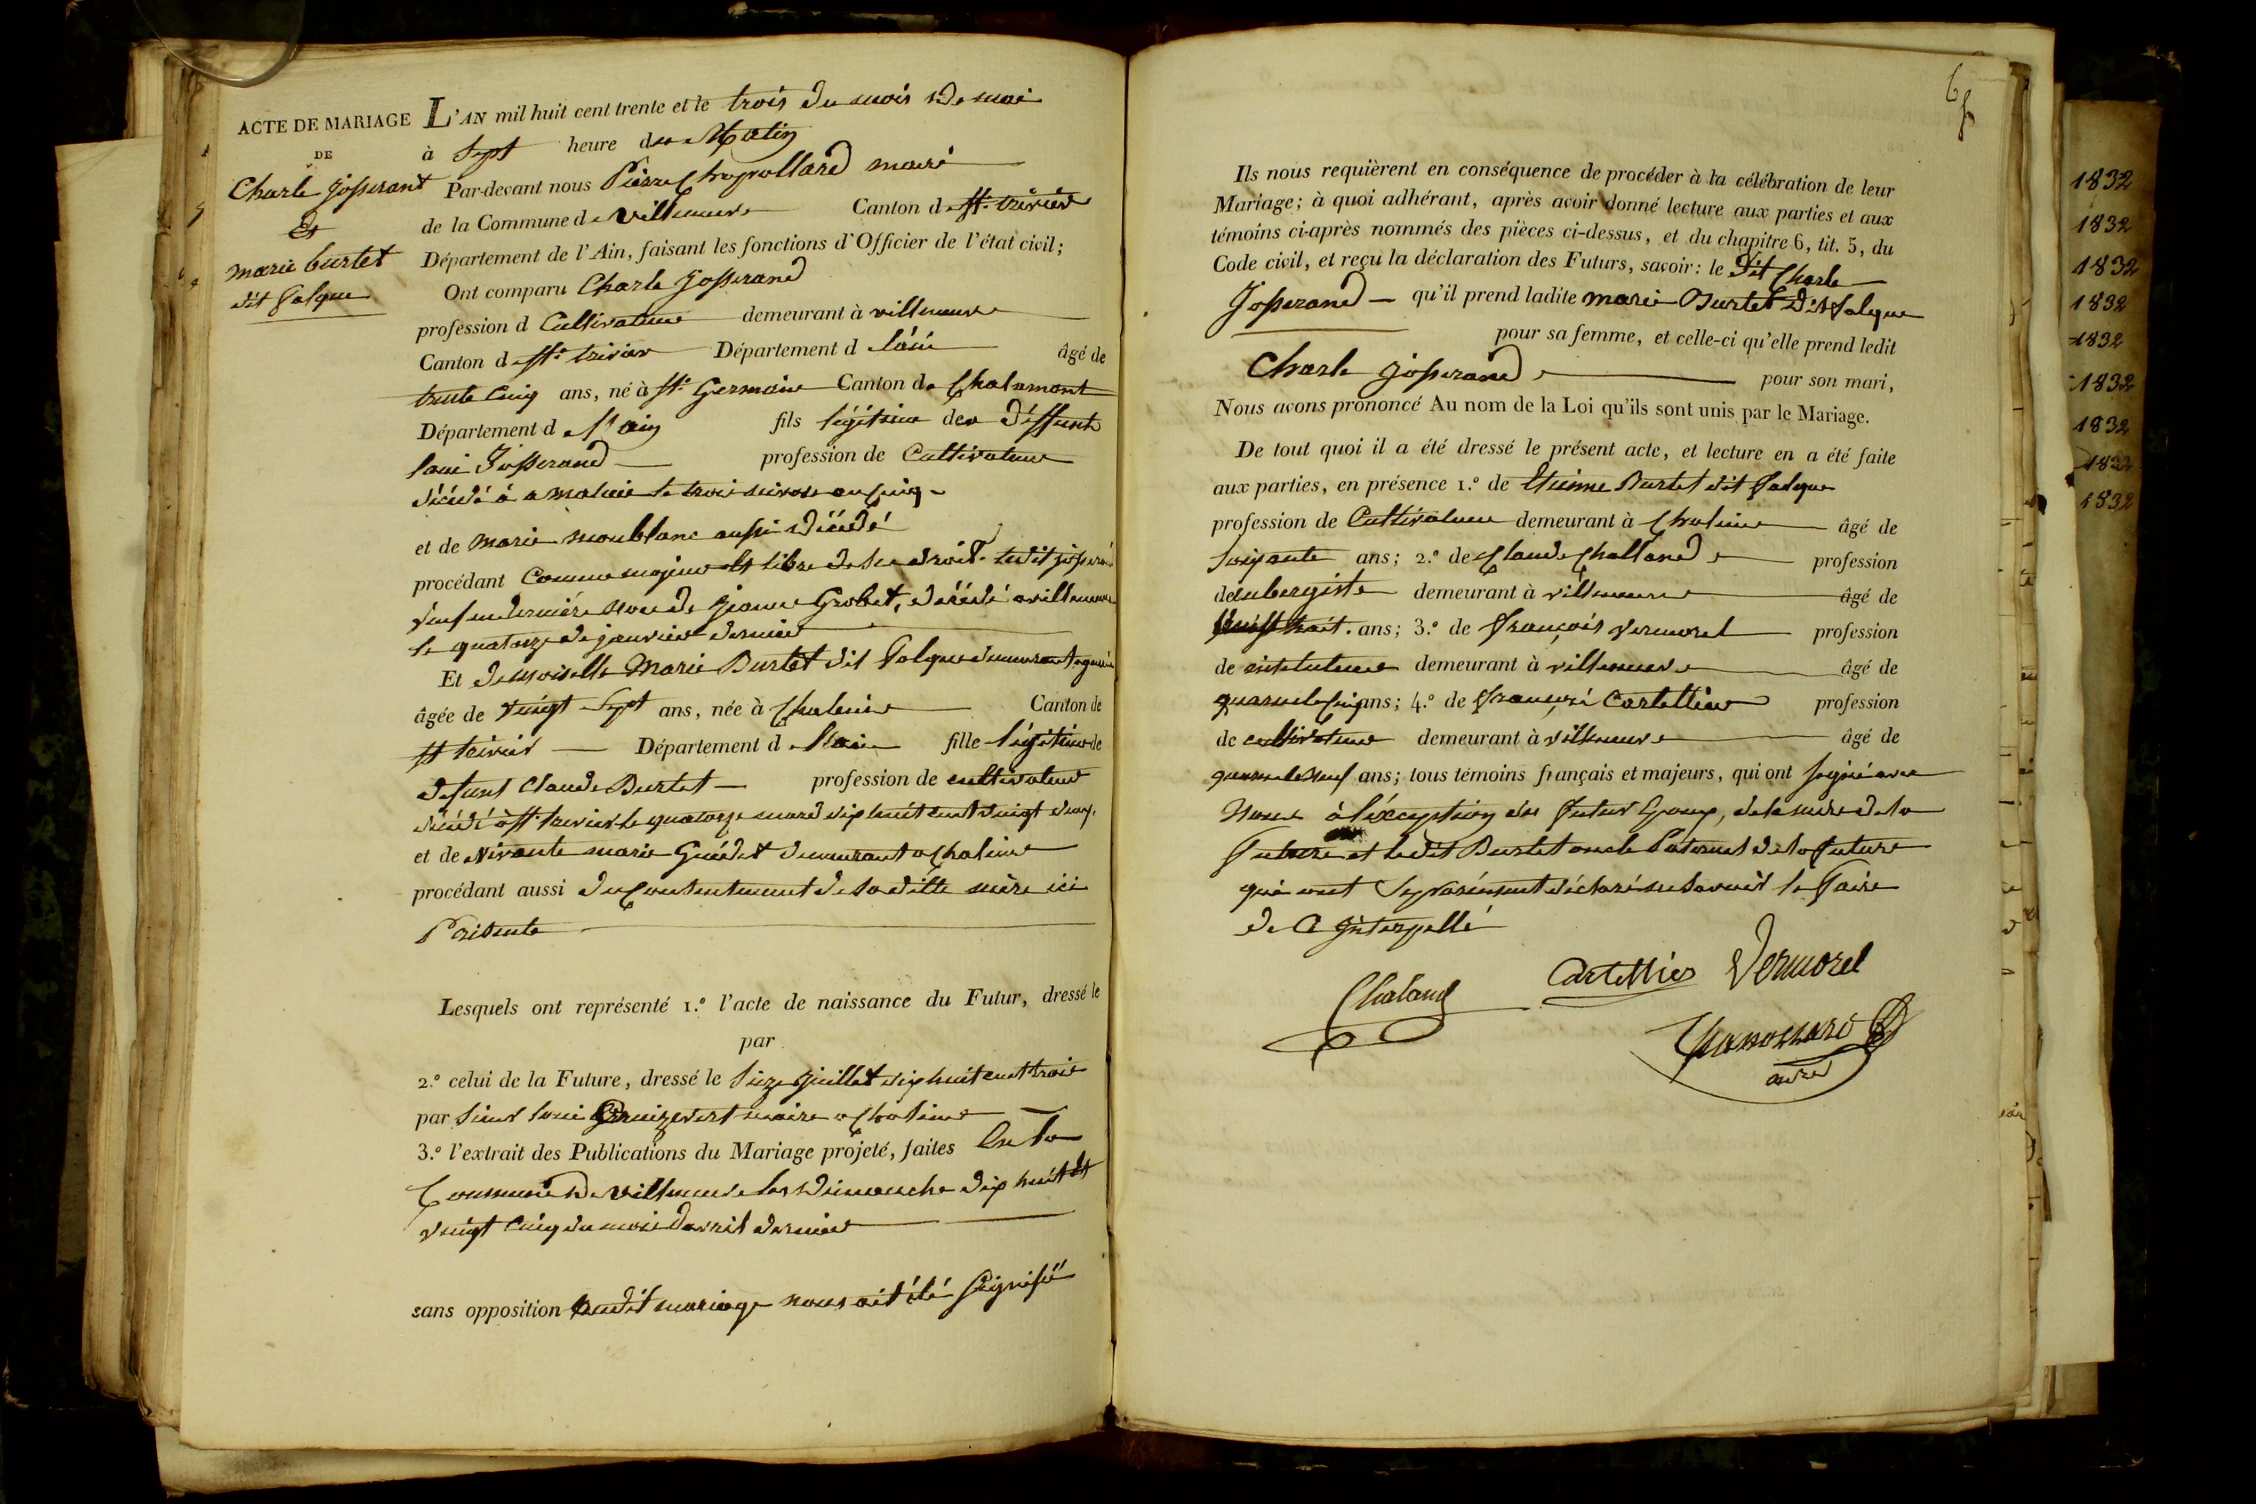 ACTE DE MARIAGE
DE
Charle josserant
Et
marie burtet
dit falque
L'AN mil huit cent trente et le trois du mois de mai
à Sept heure du Matin
Par-devant nous Pierre maire
de la Commune de villeneuve Canton de st. trivier
Département de l'Ain, faisant les fonctions d'Officier de l'état civil;
Ont comparu Charle Josserand
profession d Cultivateur demeurant à villeneuve
Canton d st. trivier Département d l'ain âgé de
trente Cinq ans, né à st. Germain Canton de Chalamont
Département d l'ain fils légitime de deffunt
loui Josserand profession de Cultivateur
décédé à le trois nivose an Cinq
et de marie monblanc aussi décédé
procédant Comme majeur et libre de ses droit. ledit josserand
veuf en dernière noce de jeanne Grobet, décédé a villeneuve
le quatorze de janvier dernier
Et demoiselle Marie Burtet dit falque demeurant
âgée de vingt Sept ans, née à Chaleins Canton de
st trivier Département d l'ain fille légitime de
defunt Claude Burtet profession de cultivateur
décédé à st. trivier le quatorze mars dix huit cent vingt deux,
et de vivante marie demeurant a Chaleins
procédant aussi du Consentement de sa ditte mère ici
Présente
Lesquels ont représenté 1.º l'acte de naissance du Futur, dressé le
par
2.º celui de la Future, dressé le Seize juillet dix huit cent trois
par Sieur loui maire a Chaleins
3.º l'extrait des Publications du Mariage projeté, faites En la
Commune de villeneuve les dimanche dix huit et
vingt Cinq du mois davril dernier
sans opposition audit mariage nous ait été signifié
6
Ils nous requièrent en conséquence de procéder à la célébration de leur
Mariage; à quoi adhérant, après avoir donné lecture aux parties et aux
témoins ci-après nommés des pièces ci-dessus, et du chapitre 6, tit. 5, du
Code civil, et reçu la déclaration des Futurs, savoir: le dit Charle
Josserand qu'il prend ladite marie Burtet dit falque
pour sa femme, et celle-ci qu'elle prend ledit
Charle josserand pour son mari,
Nous avons prononcé Au nom de la Loi qu'ils sont unis par le Mariage.
De tout quoi il a été dressé le présent acte, et lecture en a été faite
aux parties, en présence 1.º de Etienne Burtet dit falque
profession de Cultivateur demeurant à Chaleins âgé de
Soixante ans; 2.º de Claude Challand profession
de aubergiste demeurant à villeneuve âgé de
ans; 3.º de françois vermorel profession
de instituteur demeurant à villeneuve âgé de
quarante Cinq ans; 4.º de françois Cartellier profession
de cultivateur demeurant à villeneuve âgé de
quarante neuf ans; tous témoins français et majeurs, qui ont signé avec
Nous à l'exception du futur Epoux, de la mère de la
future et le dit Burtet oncle Paternel de la future
qui ont Séparément déclaré ne savoir le faire
de Ce interpellé
Chaland
Cartellier
Vermorel
maire
1832
1832
1832
1832
1832
1832
1832
1832
1832